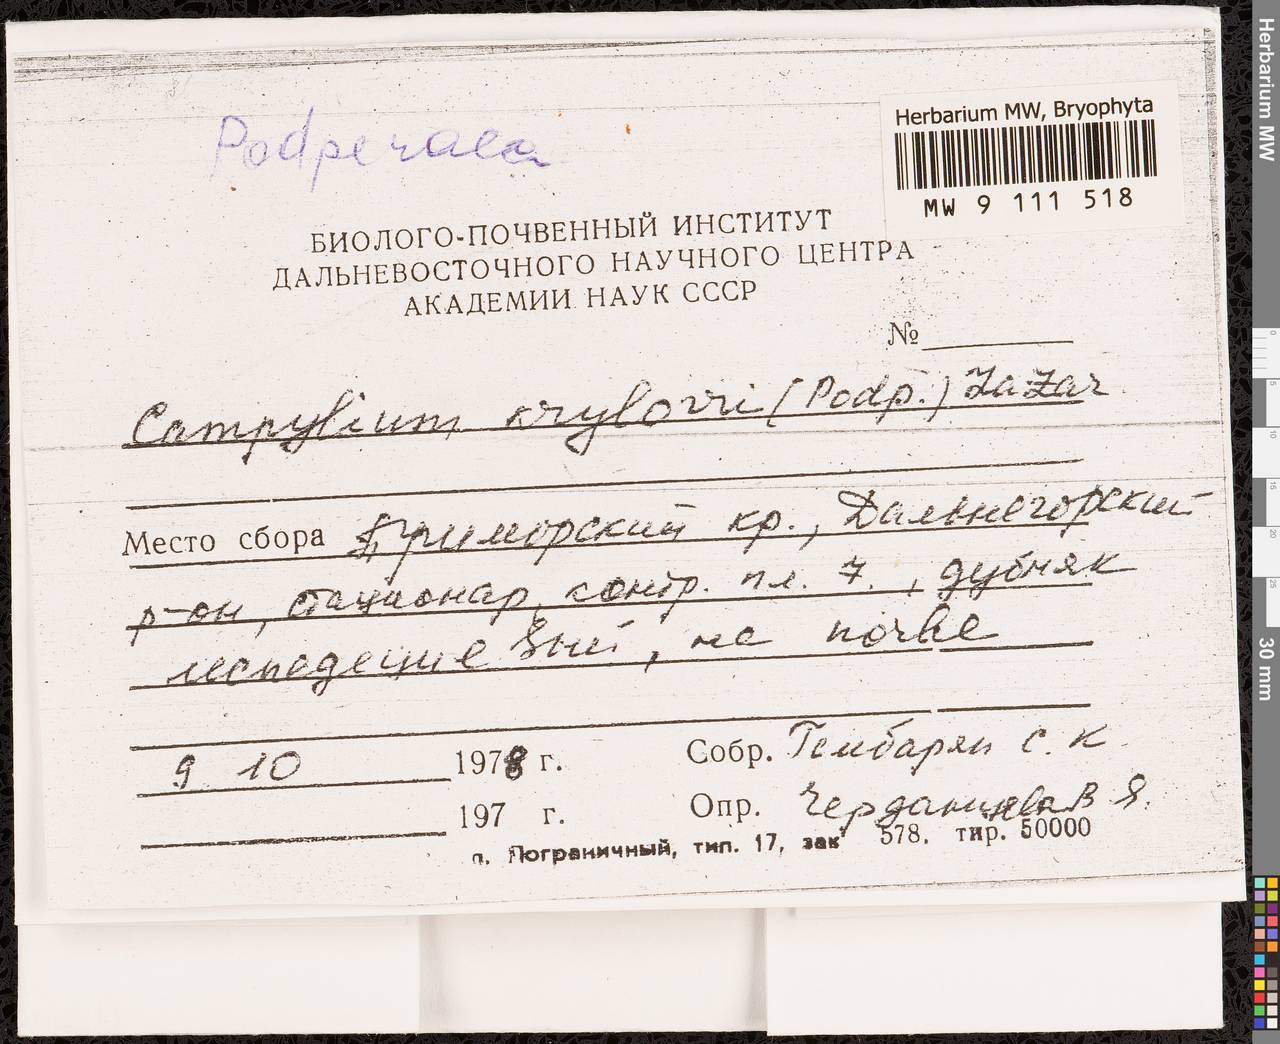 Podperaea
Herbarium MW, Bryophyta
MW 9 111 518
БИОЛОГО-ПОЧВЕННЫЙ ИНСТИТУТ
ДАЛЬНЕВОСТОЧНОГО НАУЧНОГО ЦЕНТРА
АКАДЕМИИ НАУК СССР
№
Campylium krylovii (Podp.) Lazar
Место сбора Приморский кр., Дальнегорский
р-он, стационар, контр. пл. 7., дубняк
леспедецие вый, на почве
9 10 1978 г. Собр. Гамбарян С. К
197 г. Опр. Черданцева В Я.
п. Пограничный, тип. 17, зак 578. тир. 50000
Herbarium MW
0 5 10 15 20 25
30 mm